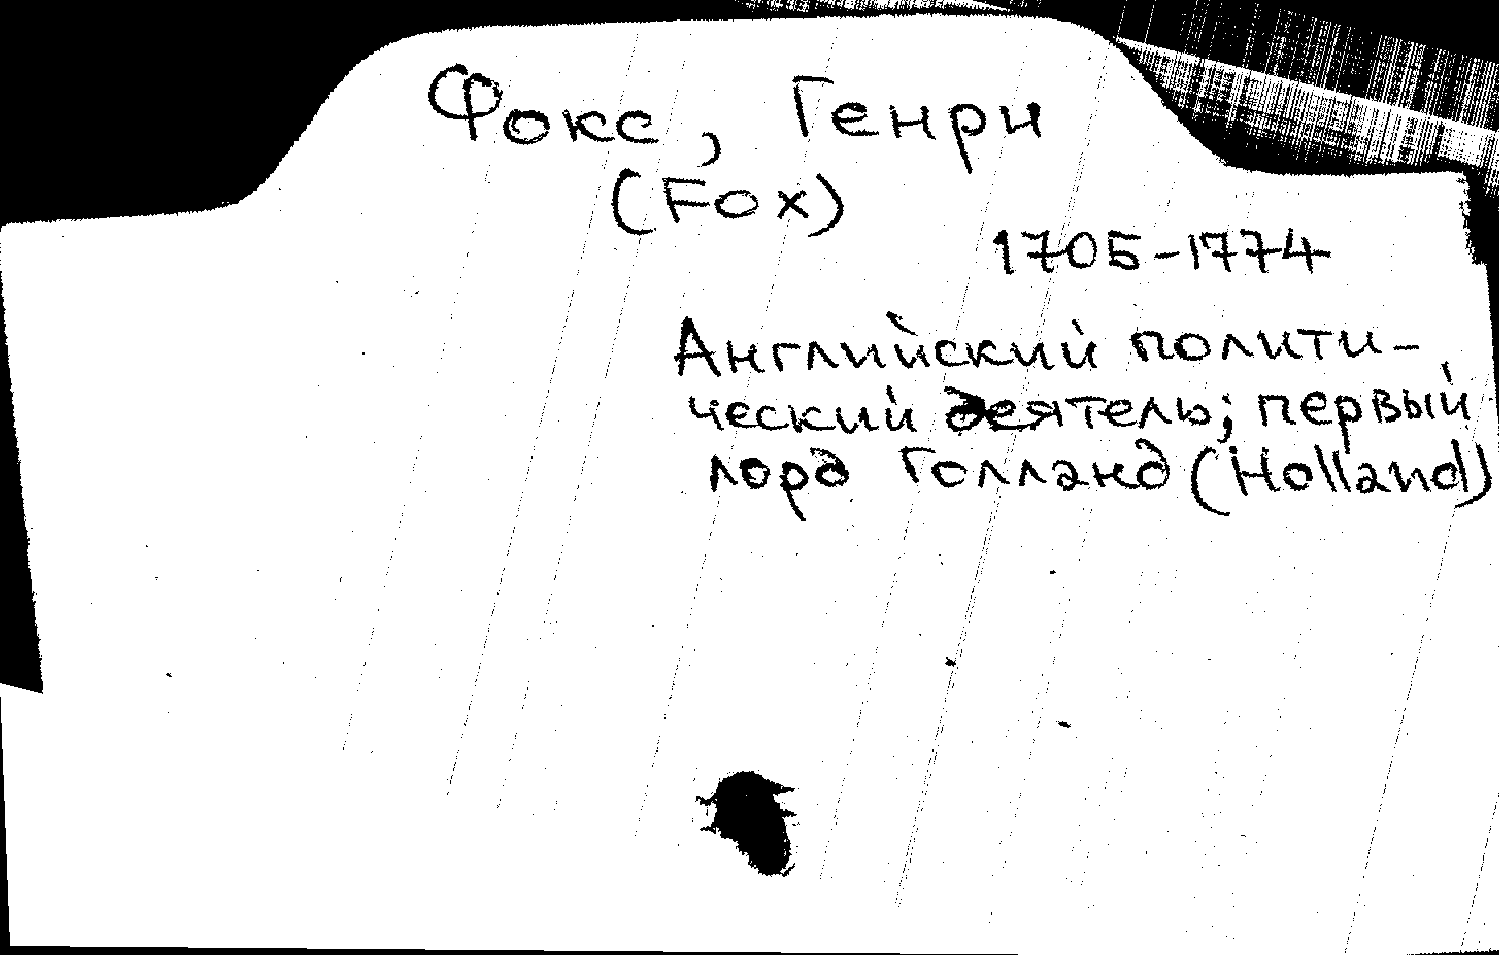 Фокс, Генри
(Fox)
1705-1774
Английский полити-
ческий деятель; первый
лорд Голланд (Holland)